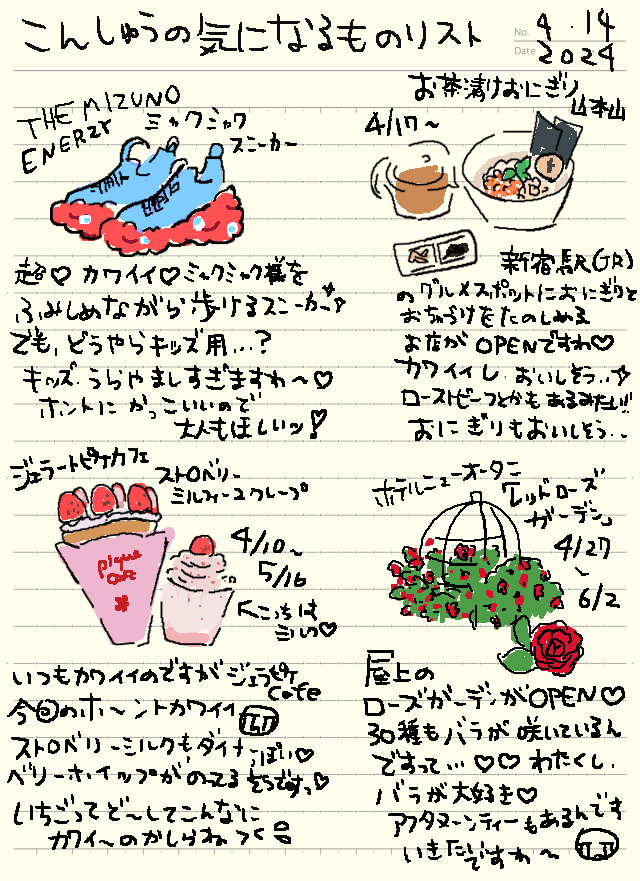 こんしゅうの気になるものリスト
No. 4.14
Date 2024
THE MIZUNO
ENERZY
ミャクミャク
スニーカー
超♡カワイイ♡ミャクミャク様を
ふみしめながら歩けるスニーカー
でも、どうやらキッズ用…?
キッズ、うらやましすぎますわ〜♡
ホントにかっこいいので
大人もほしいッ!
お茶漬けおにぎり
山本山
4/17〜
新宿駅(JR)
のグルメスポットにおにぎりと
おちゃづけをたのしめる
お店がOPENですわ♡
カワイイし、おいしそう…☆
ローストビーフとかもあるみたい!!
おにぎりもおいしそう…
ジェラートピケカフェ
ストロベリー
ミルフィーユクレープ
pique
cafe
4/10〜
5/16
こっちは
ミルク♡
いつもカワイイのですがジェラピケ
cafe
今回のホ〜ントカワイイ
ストロベリーミルクもダイナ
っぽい♡
ベリーホイップがのってるそうですっ♡
いちごってど〜してこんなに
カワイ〜のかしらね
ホテルニューオータニ
「レッドローズ
ガーデン」
4/27
〜
6/2
屋上の
ローズガーデンがOPEN♡
30種もバラが咲いているん
ですって…♡♡わたくし、
バラが大好き♡
アフタヌーンティーもあるんです
いきたいですわ〜